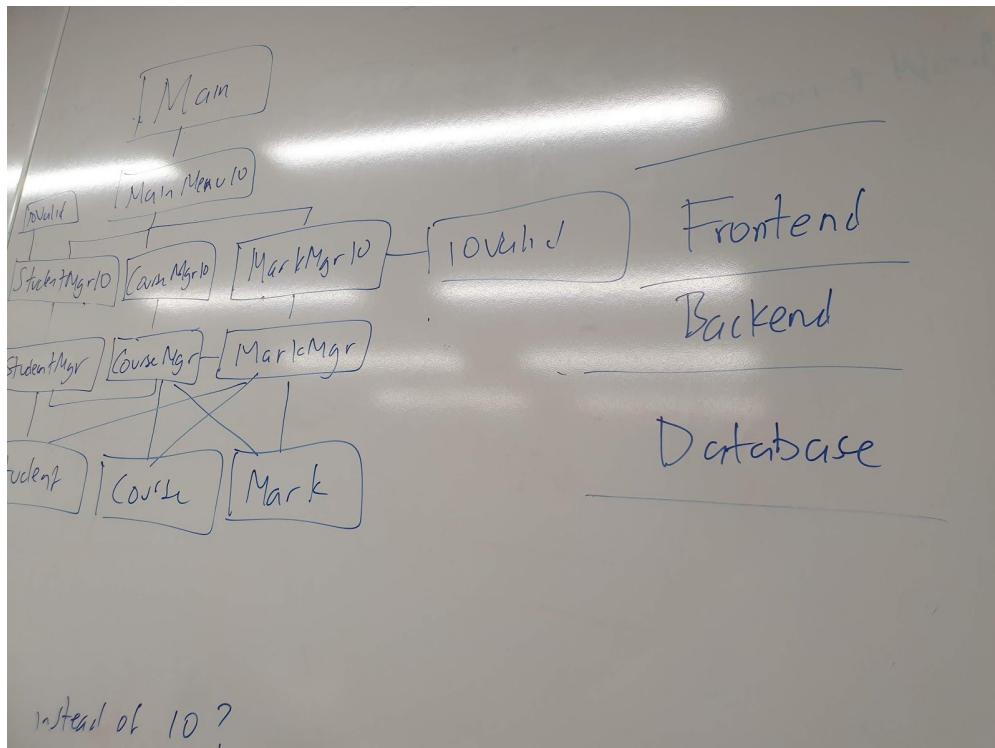 Main
MainMenuIO
IOValid
StudentMgrIO
CourseMgrIO
MarkMgrIO
IOValid
StudentMgr
CourseMgr
MarkMgr
tudent
Course
Mark
Frontend
Backend
Database
instead of IO?